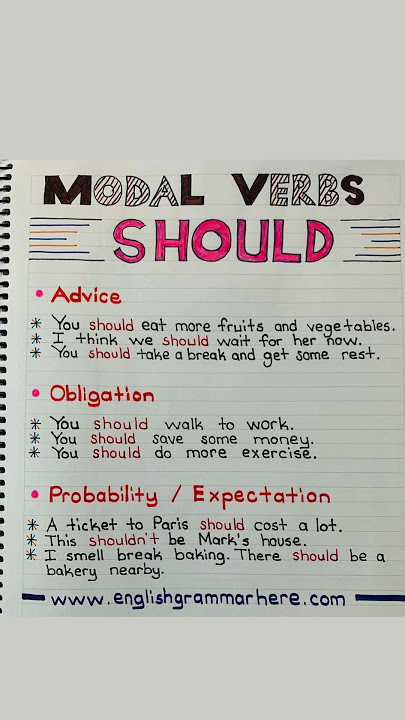 MODAL VERBS
SHOULD
• Advice
* You should eat more fruits and vegetables.
* I think we should wait for her now.
* You should take a break and get some rest.
• Obligation
* You should walk to work.
* You should save some money.
* You should do more exercise.
• Probability / Expectation
* A ticket to Paris should cost a lot.
* This shouldn't be Mark's house.
* I smell break baking. There should be a
bakery nearby.
www.englishgrammarhere.com